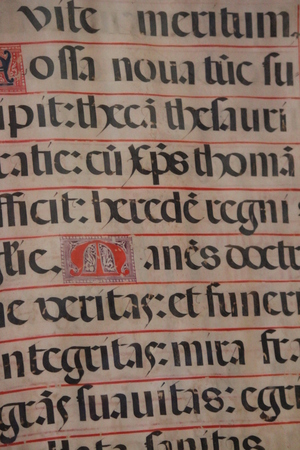 vite meritum.
ossa noua tūc su
ipit: thecā thesauri
ratie: cū xp̄s thomā
fficit: heredē regni s
glīe. Manēs doctr
e veritas: et funeri
ntegritas: mira fra
grās suauitas: egri
sanitas